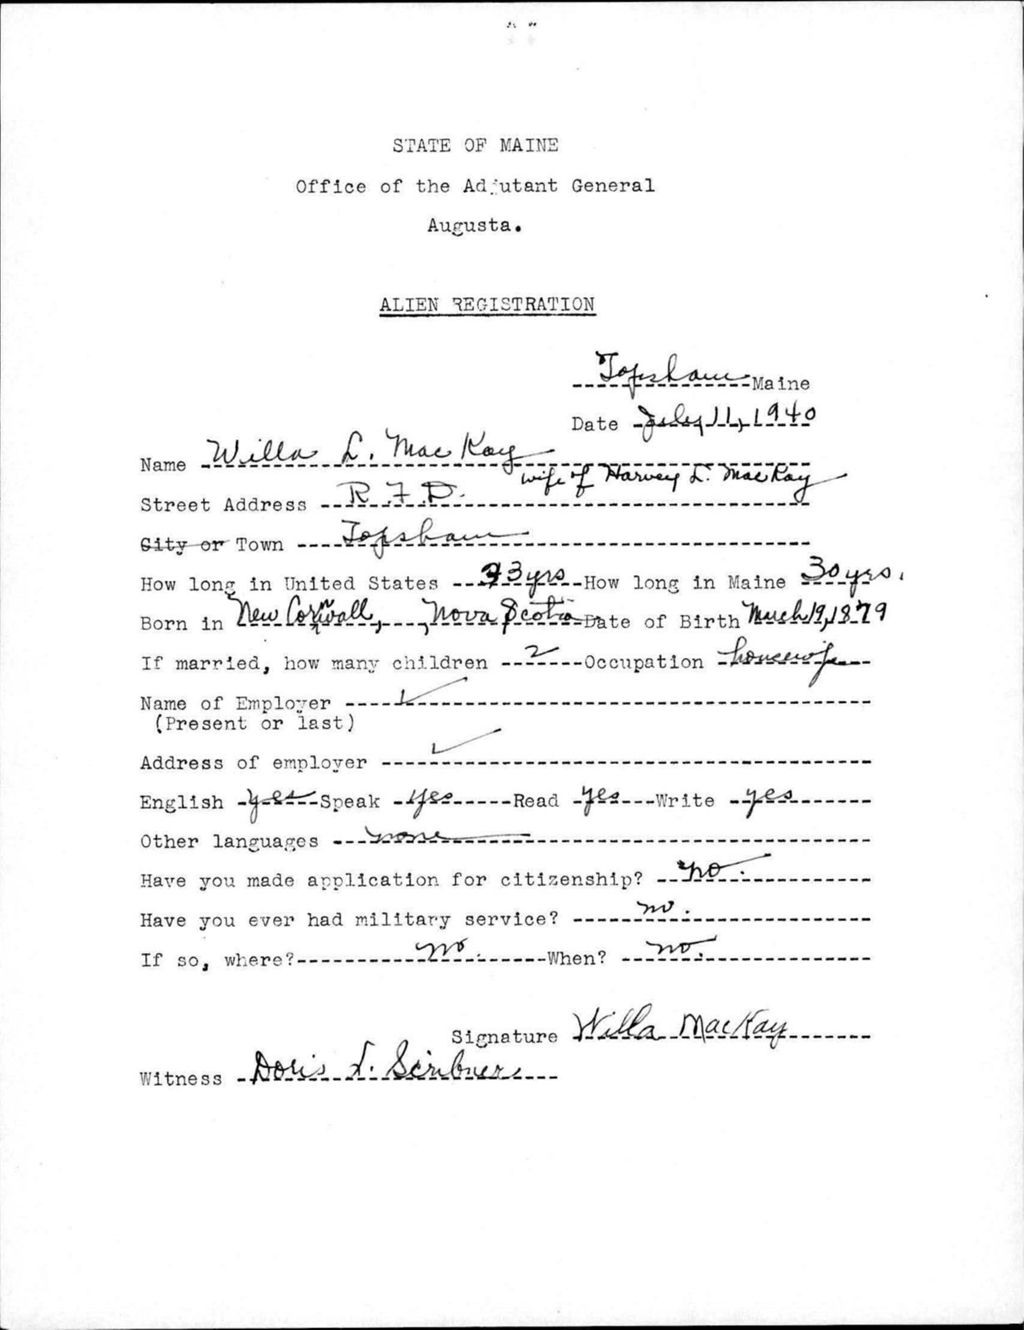 STATE OF MAINE
Office of the Adjutant General
Augusta.
ALIEN REGISTRATION
Topsham Maine
Date July 11, 1940
Name Willa L. MacKay
wife of Harvey L. MacKay
Street Address R.F.D.
City or Town Topsham
How long in United States 43 yrs How long in Maine 30 yrs.
Born in New Cornwall, Nova Scotia Date of Birth March 19, 1879
If married, how many children 2 Occupation housewife
Name of Employer ✓
(Present or last)
Address of employer ✓
English yes Speak yes Read yes Write yes
Other languages none
Have you made application for citizenship? no.
Have you ever had military service? no.
If so, where? no. When? no.
Signature Willa MacKay
Witness Doris Scribner